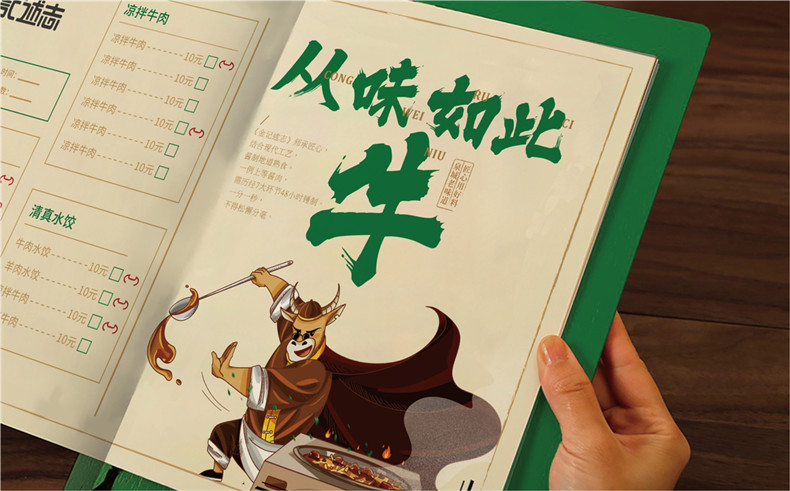 记诚志
时间：
凉拌牛肉
凉拌牛肉 10元
凉拌牛肉 10元
凉拌牛肉 10元
凉拌牛肉 10元
凉拌牛肉 10元
凉拌牛肉 10元
清真水饺
牛肉水饺 10元
羊肉水饺 10元
凉拌牛肉 10元
牛肉 10元
从味如此
CONG WEI RU CI
牛
NIU
匠心用好料
泉城老味道
《金记诚志》师承匠心，
结合现代工艺，
酱制地道熟食。
一例上等酱肉，
需历经7大环节48小时操制。
一分一秒，
不得松懈分毫。